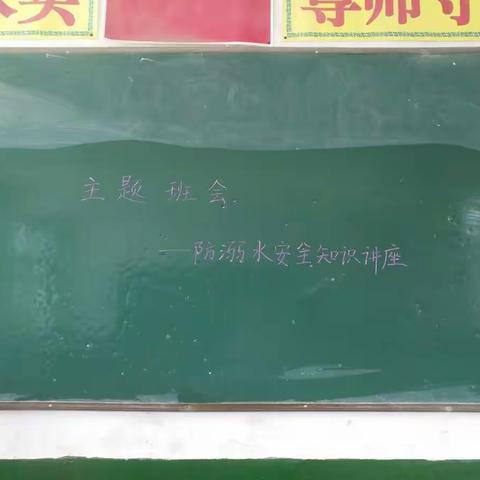 尊师守
主题班会
——防溺水安全知识讲座